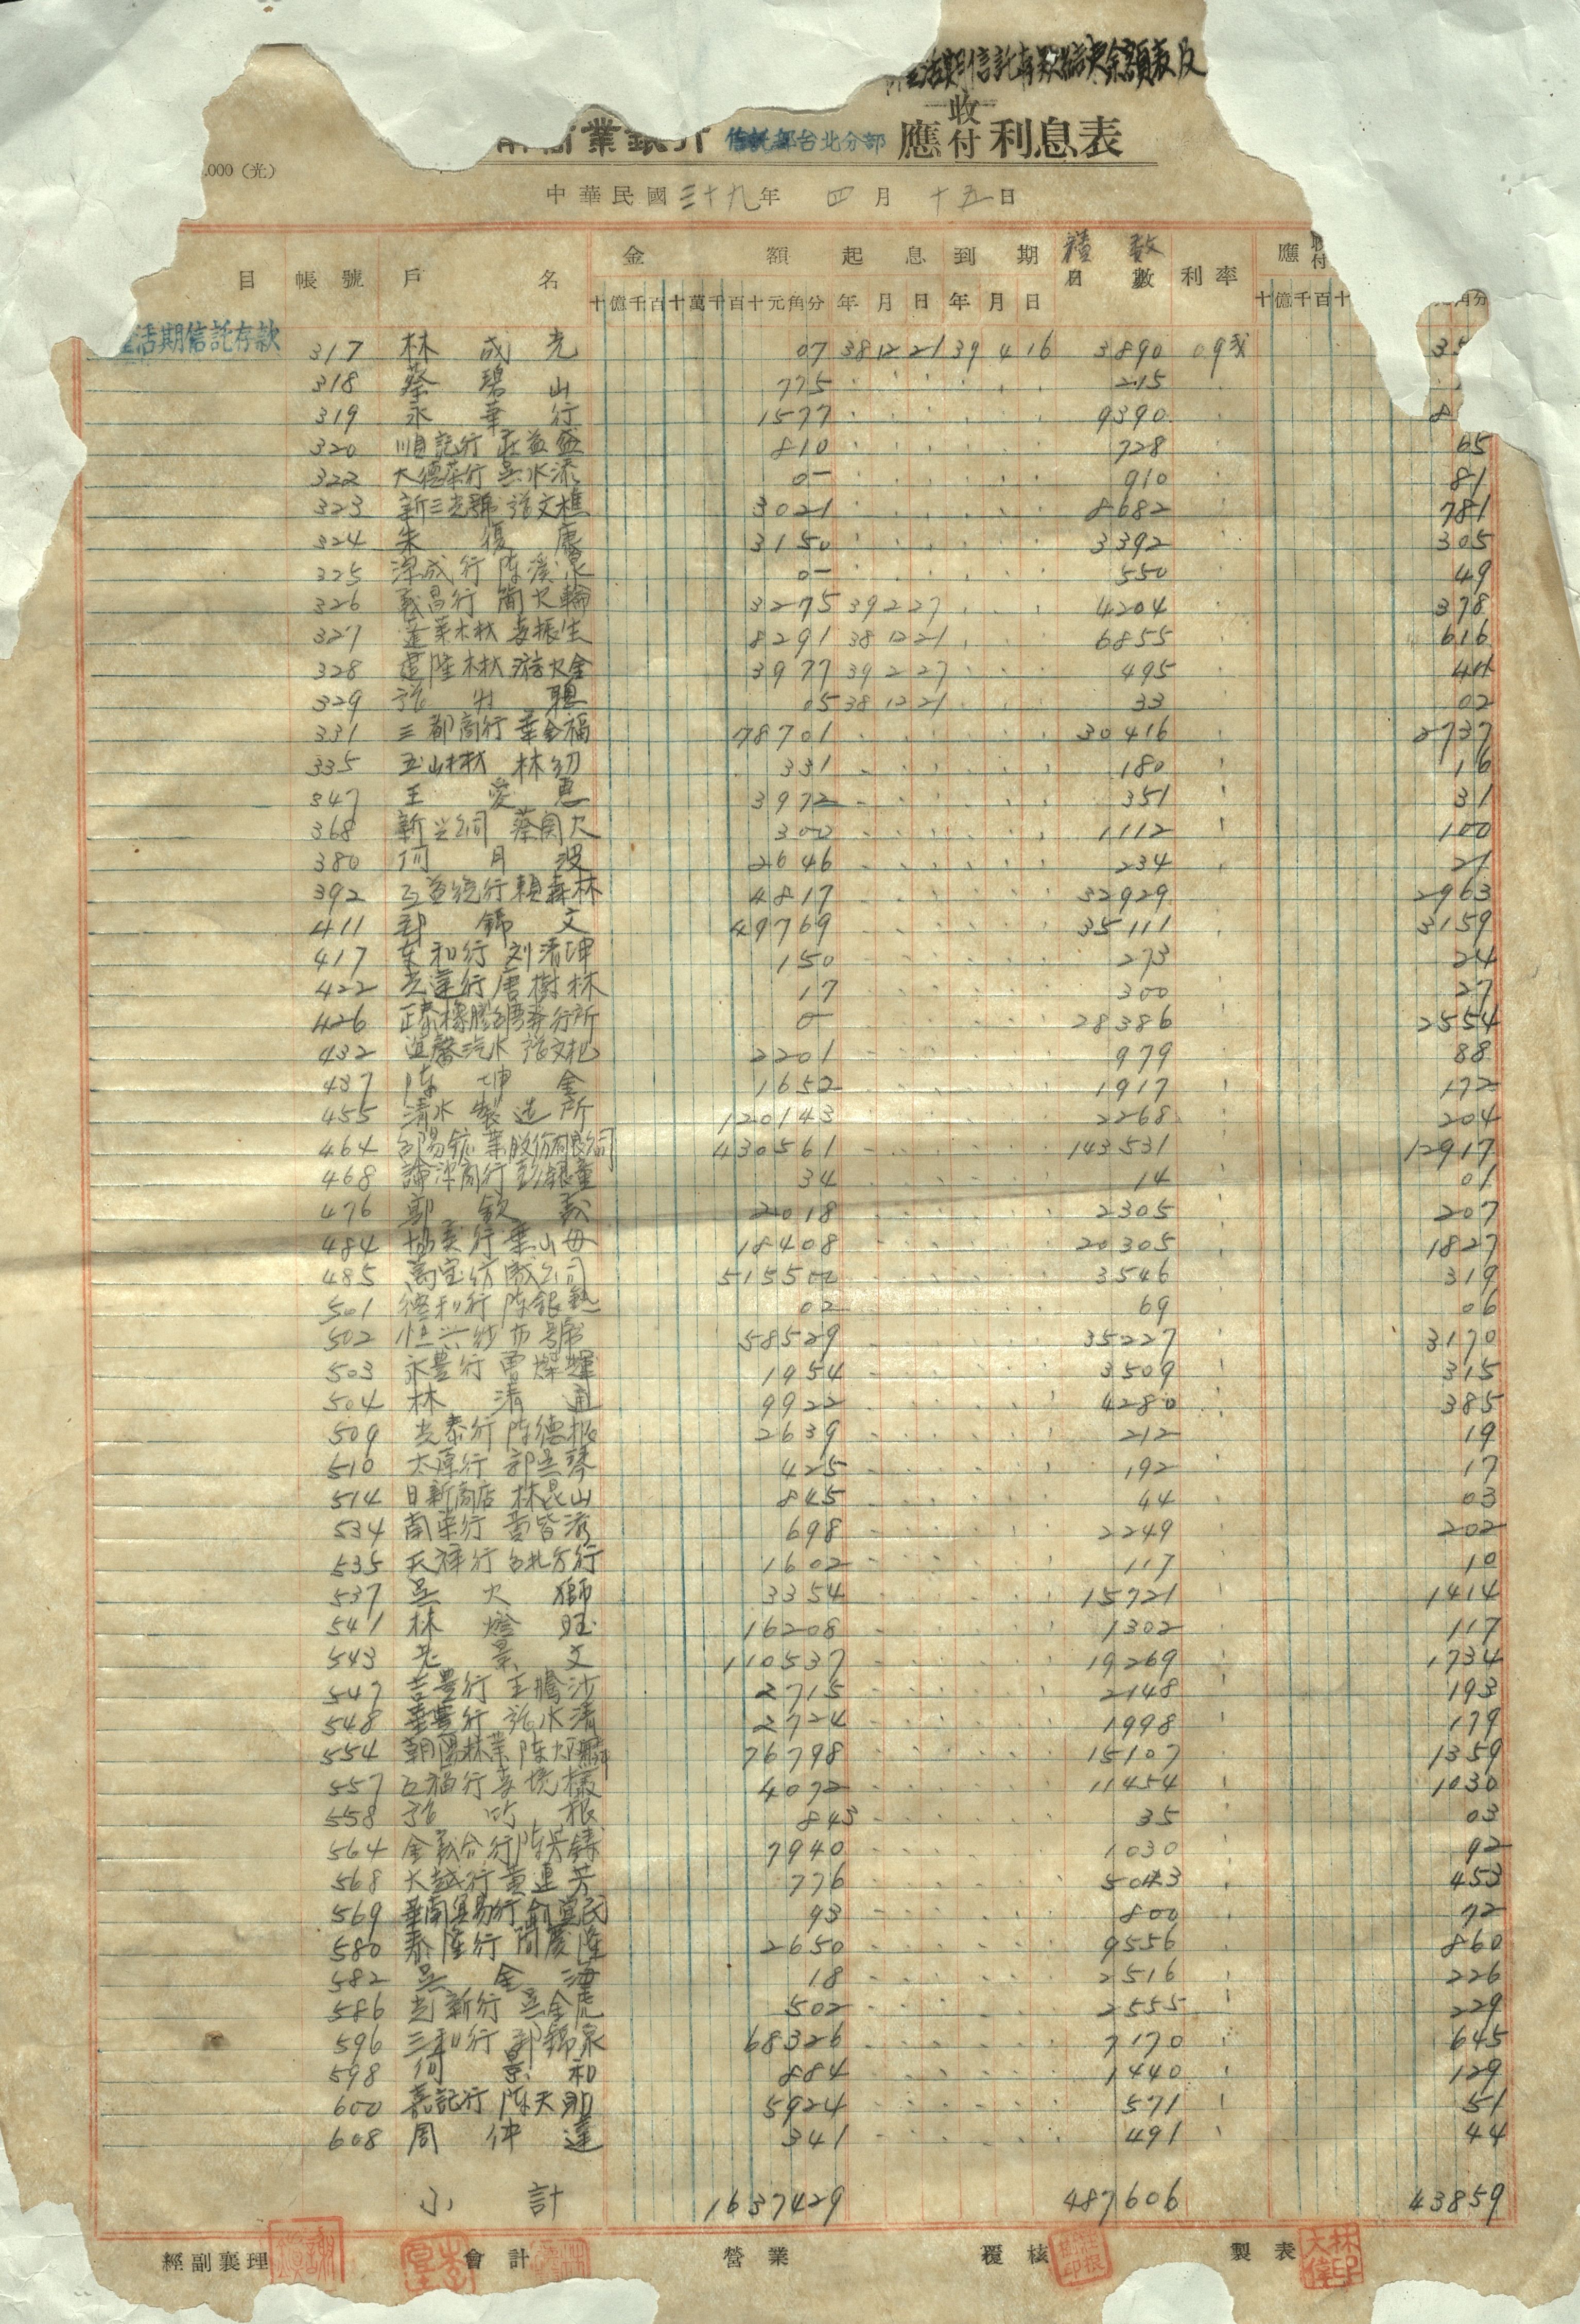 活期信託存款結決余額表及
商業銀行 信託部台北分部 應收付利息表
.000 (光)
中華民國三十九年 四月 十五日
目 帳號 戶名 金額 起息 到期 積數 日數 利率 應收付
十億千百十萬千百十元角分 年月日 年月日 十億千百十 角分
活期信託存款 317 林成光 07 38 12 21 39 4 16 3890 09
318 蔡碧山 775 215
319 永華行 1577 9390 8
320 順記行 莊益盛 810 728 65
322 大德茶行 吳水添 0- 910 81
323 新三光號 張文樵 3021 8682 781
324 朱復康 3150 3392 305
325 深成行 陈溪泉 0- 550 49
326 義昌行 簡火輪 3275 39 2 27 4204 378
327 蓬萊木材 李振生 8291 38 12 21 6855 616
328 建隆木材 游火金 3977 39 2 27 495 44
329 張 05 38 12 21 33 02
331 三都商行 葉金福 78701 30416 2737
335 玉山木材 林幼 331 180 16
347 王愛惠 3972 351 31
368 新兴公司 蔡関火 300 1112 100
380 何月波 2646 234 21
392 互益行 賴森林 4817 32929 2963
411 郭錦文 49769 35111 3159
417 東和行 刘清坤 150 273 24
422 光達行 唐樹林 17 300 27
426 正泰橡膠發行所 0- 28386 2554
432 進馨汽水 張文松 2201 979 88
437 陈坤金 1652 1917 172
455 清水製造所 120143 2268 204
464 台陽鉱業股份有限公司 430561 143531 12917
468 論洋商行 彭銀童 34 14 01
476 郭欽義 2018 2305 207
484 協美行 葉山母 18408 20305 1827
485 萬宝紡織公司 515502 3546 319
501 德利行 陈銀 02 69 06
502 恒兴紗布號 58529 35227 3170
503 永豊行 曹燦輝 1954 3509 315
504 林清通 9922 4280 385
509 光泰行 陈德根 2639 212 19
510 大潭行 郭吳琴 425 192 17
514 日新商店 林昆山 845 44 03
534 南東行 黄皆添 698 2249 202
535 天祥行 台北分行 1602 117 10
537 吳火獅 3354 15721 1414
541 林燈旺 16208 1302 117
543 尤景文 110537 19269 1734
547 吉豊行 王騰沙 2715 2148 193
548 華豊行 張水清 2724 1998 179
554 朝陽林業 陈 76798 15107 1359
557 互福行 李境樣 4072 11454 1030
558 張竹根 843 35 03
564 金義合行 陈吳錦 7940 1030 92
568 大越行 黄連芳 776 5043 453
569 華南貿易行 俞寬民 93 800 72
580 泰隆行 簡慶隆 2650 9556 860
582 吳金海 18 2516 226
586 彭新行 吳金虎 502 2555 229
596 三和行 郭錦泉 68326 7170 645
598 何景和 884 1440 129
600 嘉記行 陈天助 5924 571 51
608 周仲達 341 491 44
小計 1637429 487606 43859
經副襄理 會計 營業 覆核 製表 林大偉印